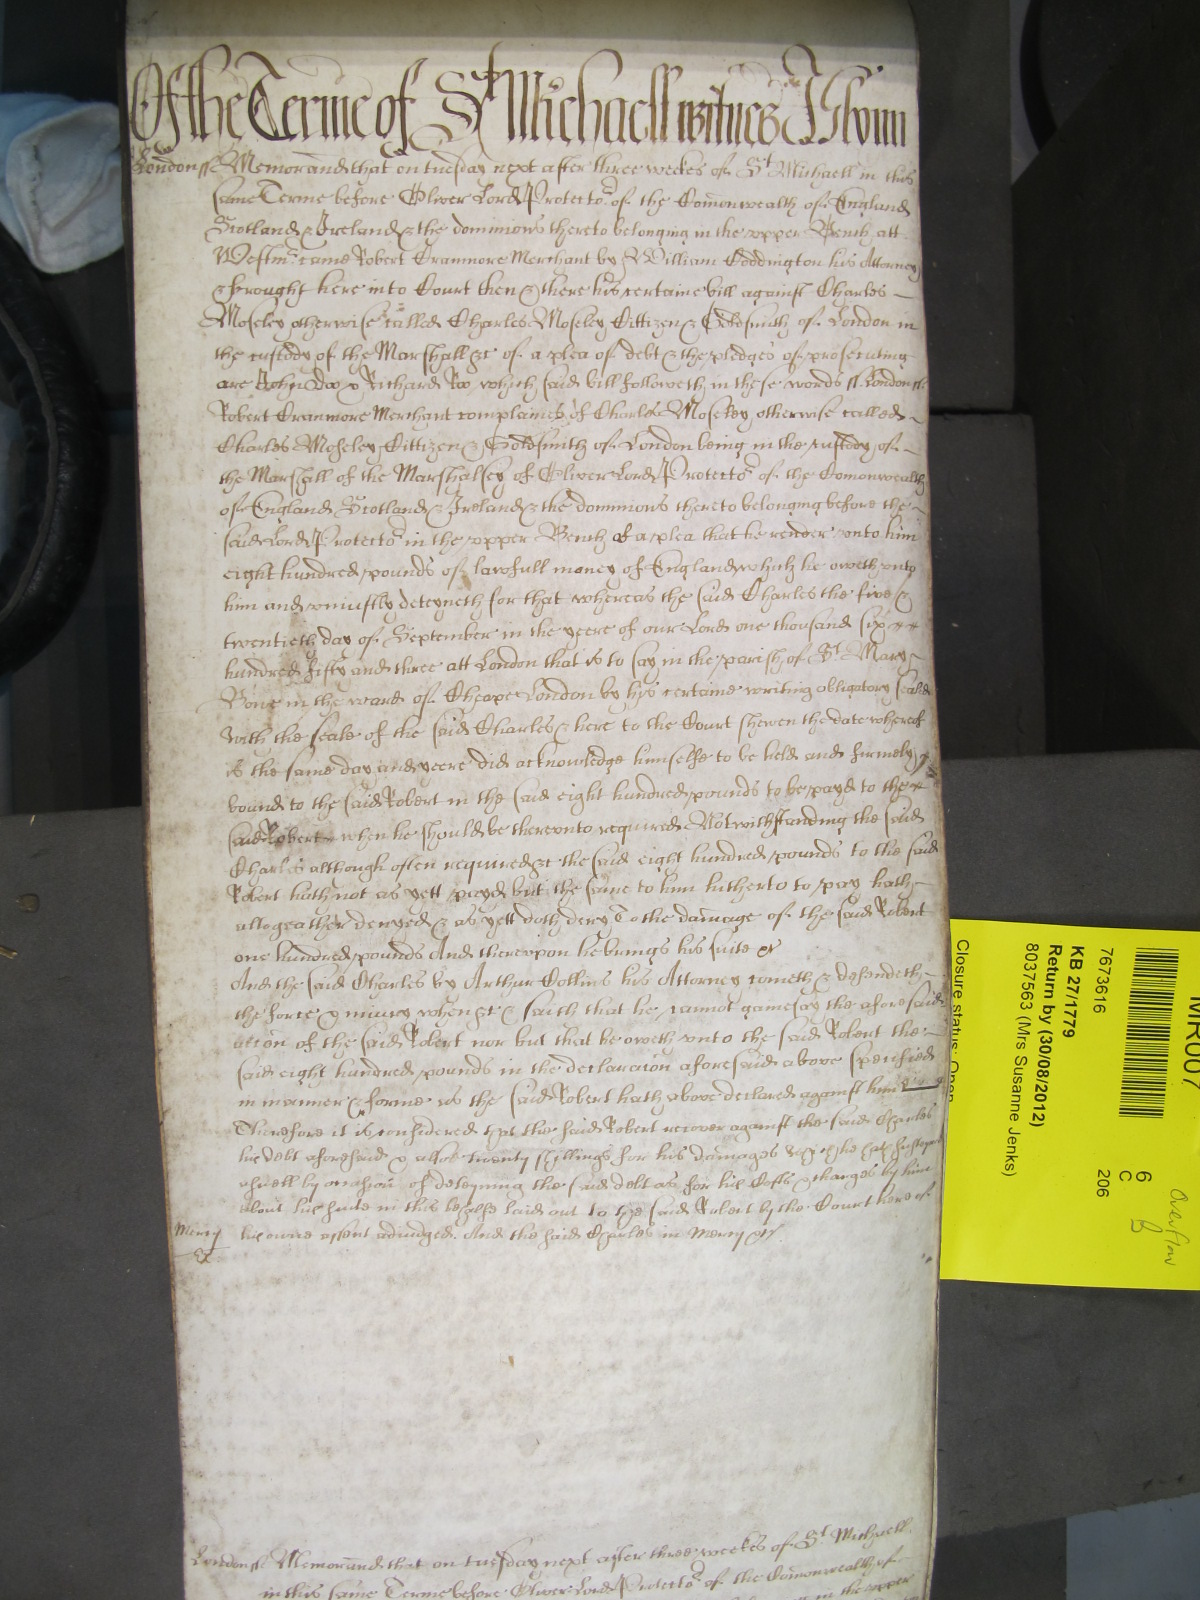 Of the Terme of St Michaell witnes J Glynn
London ss Memorand that on tuesday next after three weekes of St Michaell in this
same Terme before Oliver Lord Protector of the Comonwealth of England
Scotland & Ireland & the dominions thereto belonging in the upper Bench att
Westmr came Robert Cranmore Merchant by William Coddington his Attorney
& brought here into Court then & there his certaine bill against Charles
Moseley otherwise called Charles Moseley Cittizen & Goldsmith of London in
the custody of the Marshall &c of a plea of debt & the pledges of prosecuting
are John Doo & Richard Roo which said bill followeth in these words ss London ss
Robert Cranmore Merchant complaines of Charles Moseley otherwise called
Charles Moseley Cittizen & Goldsmith of London being in the custody of
the Marshall of the Marshalsey of Oliver Lord Protector of the Comonwealth
of England Scotland & Ireland & the dominions thereto belonging before the
said Lord Protector in the upper Bench of a plea that he render unto him
eight hundred pounds of lawfull money of England which he oweth unto
him and uniustly deteyneth for that whereas the said Charles the five &
twentieth day of September in the yeere of our Lord one thousand six
hundred fifty and three att London that is to say in the parish of St Mary
Bowe in the ward of Cheape London by his certaine writing obligatory sealed
with the seale of the said Charles & here to the Court shewen the date whereof
is the same day and yeere did acknowledge himselfe to be held and firmely
bound to the said Robert in the said eight hundred pounds to be payd to the
said Robert when he should be thereunto required Notwithstanding the said
Charles although often required &c the said eight hundred pounds to the said
Robert hath not as yett payd but the same to him hitherto to pay hath
altogeather denyed & as yett doth deny To the damage of the said Robert
one hundred pounds And thereupon he brings his suite &c
And the said Charles by Arthur Collins his Attorney cometh & defendeth
the force & iniury when &c & saith that he cannot gainesay the aforesaid
accon of the said Robert nor but that he oweth unto the said Robert the
said eight hundred pounds in the declaracion aforesaid above specified
in manner & forme as the said Robert hath above declared against him
Therefore it is considered that the said Robert recover against the said Charles
his debt aforesaid & alsoe twenty shillings for his damages which he hath susteyned
aswell by occasion of deteyning the said debt as for his Costs & charges by him
about his suite in this behalfe laid out to the said Robert by the Court here of
his owne assent adiudged. And the said Charles in Mercy &c
Mercy
London ss Memorand that on tuesday next after three weekes of St Michaell
in this same Terme before Oliver Lord Protector of the Comonwealth of
in the upper
MR007
7673616
KB 27/1779
Return by (30/08/2012)
8037563 (Mrs Susanne Jenks)
Closure status: Open
6
C
206
Overflow